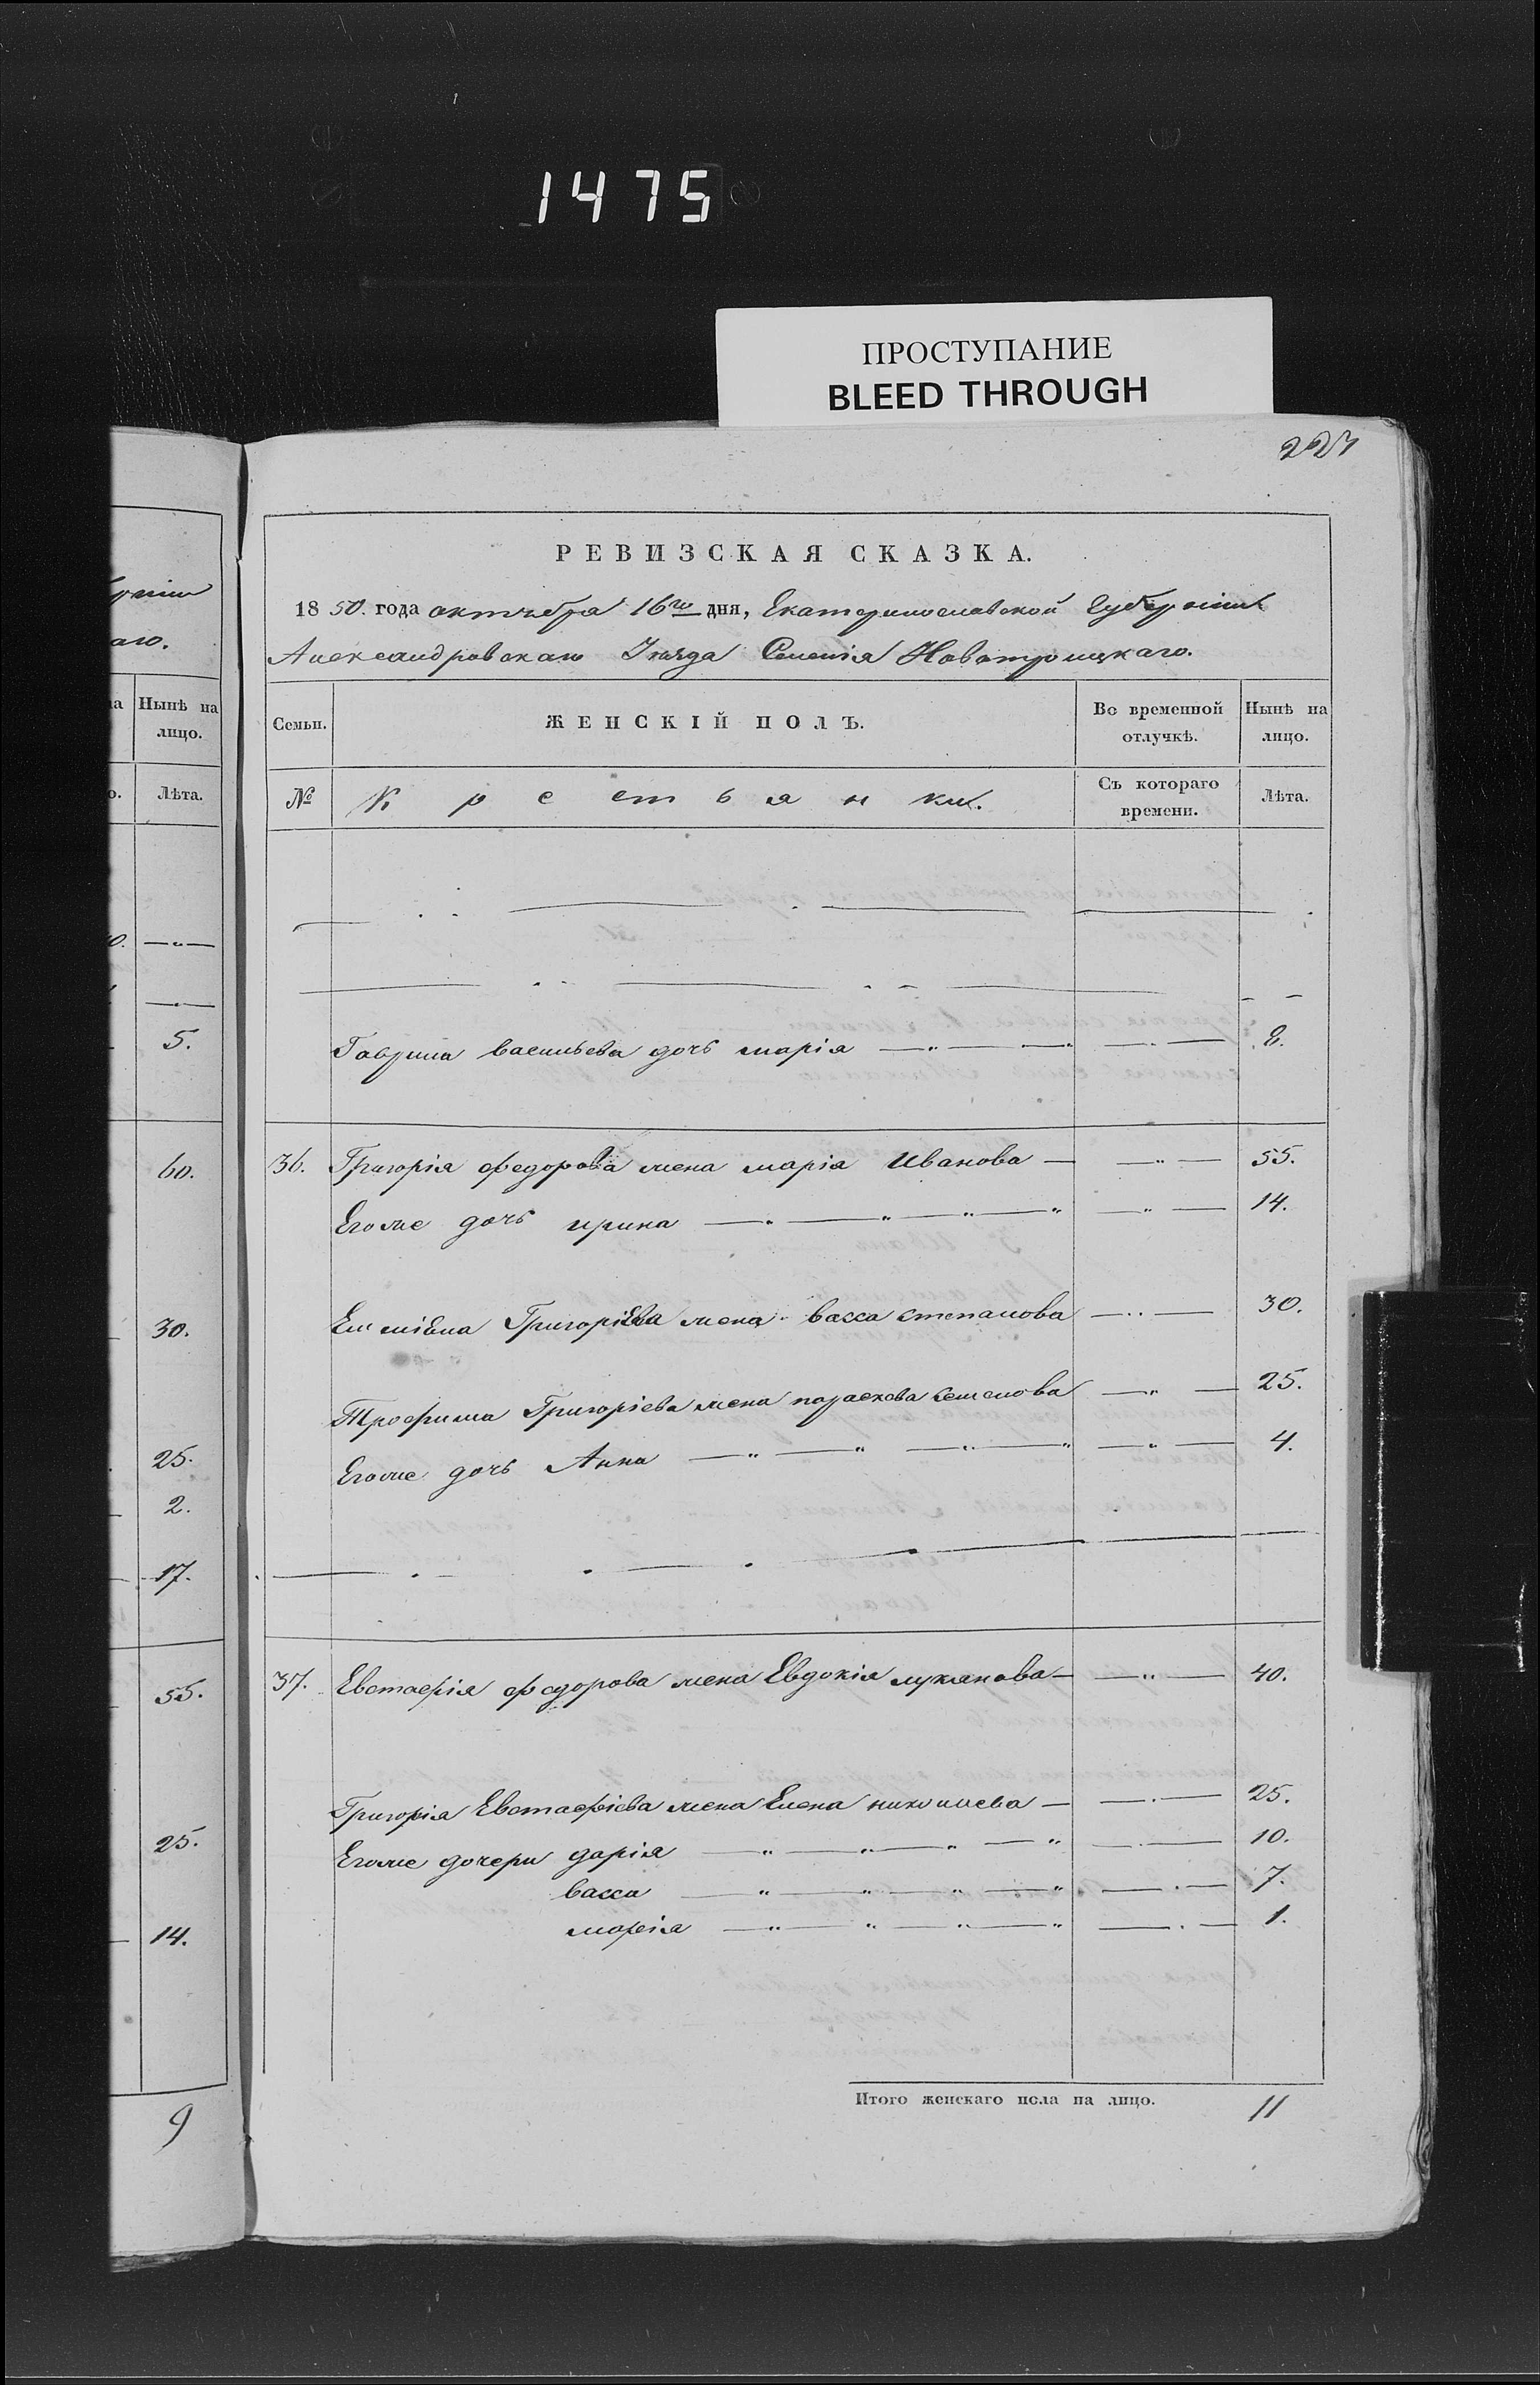 1475
ПРОСТУПАНИЕ
BLEED THROUGH
227
РЕВИЗСКАЯ СКАЗКА.
1850. года октября 16го дня, Екатеринославской Губерніи
Александровскаго Уѣзда Селенія Новотроицкаго.
аго.
Нынѣ на лицо.
Семьи. ЖЕНСКІЙ ПОЛЪ. Во временной отлучкѣ. Нынѣ на лицо.
Лѣта.
№ Крестьянки. Съ котораго времени. Лѣта.
5.
Гаврила васильева дочь марія 2.
60.
36. Григорія федорова жена марія Иванова 55.
Егоже дочь ирина 14.
30.
Емиліяна Григоріева жена васса степанова 30.
Трофима Григоріева жена параскева семенова 25.
25.
Егоже дочь Анна 4.
2.
17.
55.
37. Евстафія федорова жена Евдокія лукянова 40.
25.
Григорія Евстафіева жена Елена николаева 25.
Егоже дочери дарія 10.
васса 7.
14.
марія 1.
9
Итого женскаго пола на лицо. 11